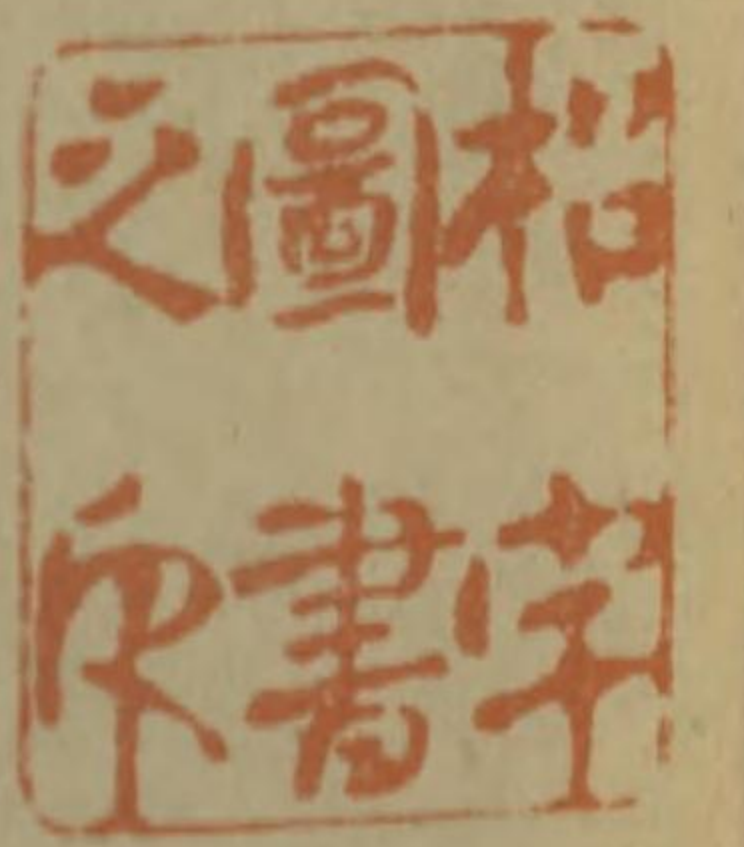 松宇
圖書
之印